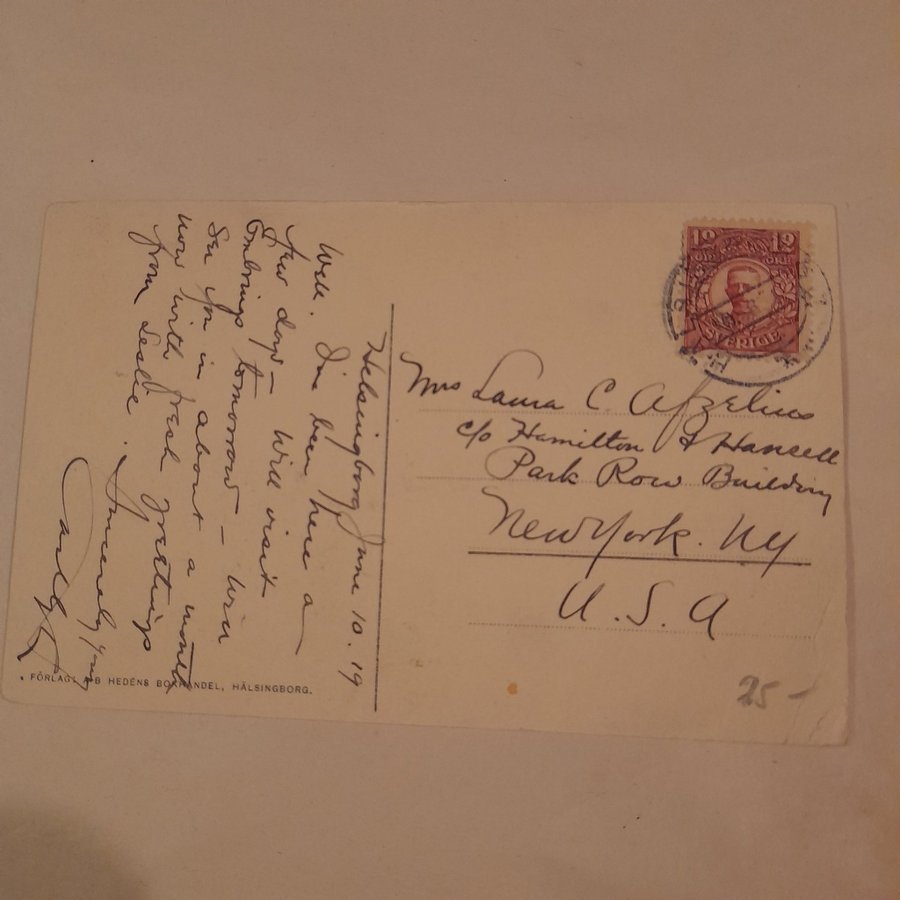 Helsingborg June 10. 19
Well. I've been here a
few days — will visit
tomorrow — will
see you in about a month
now with fresh greetings
from Leslie. Sincerely yours
FÖRLAG: A-B HEDÉNS BOKHANDEL, HÄLSINGBORG.
12 12
ÖRE ÖRE
SVERIGE
Mrs Laura C. Afzelius
c/o Hamilton & Hansell
Park Row Building
New York. NY
U.S.A
25 -